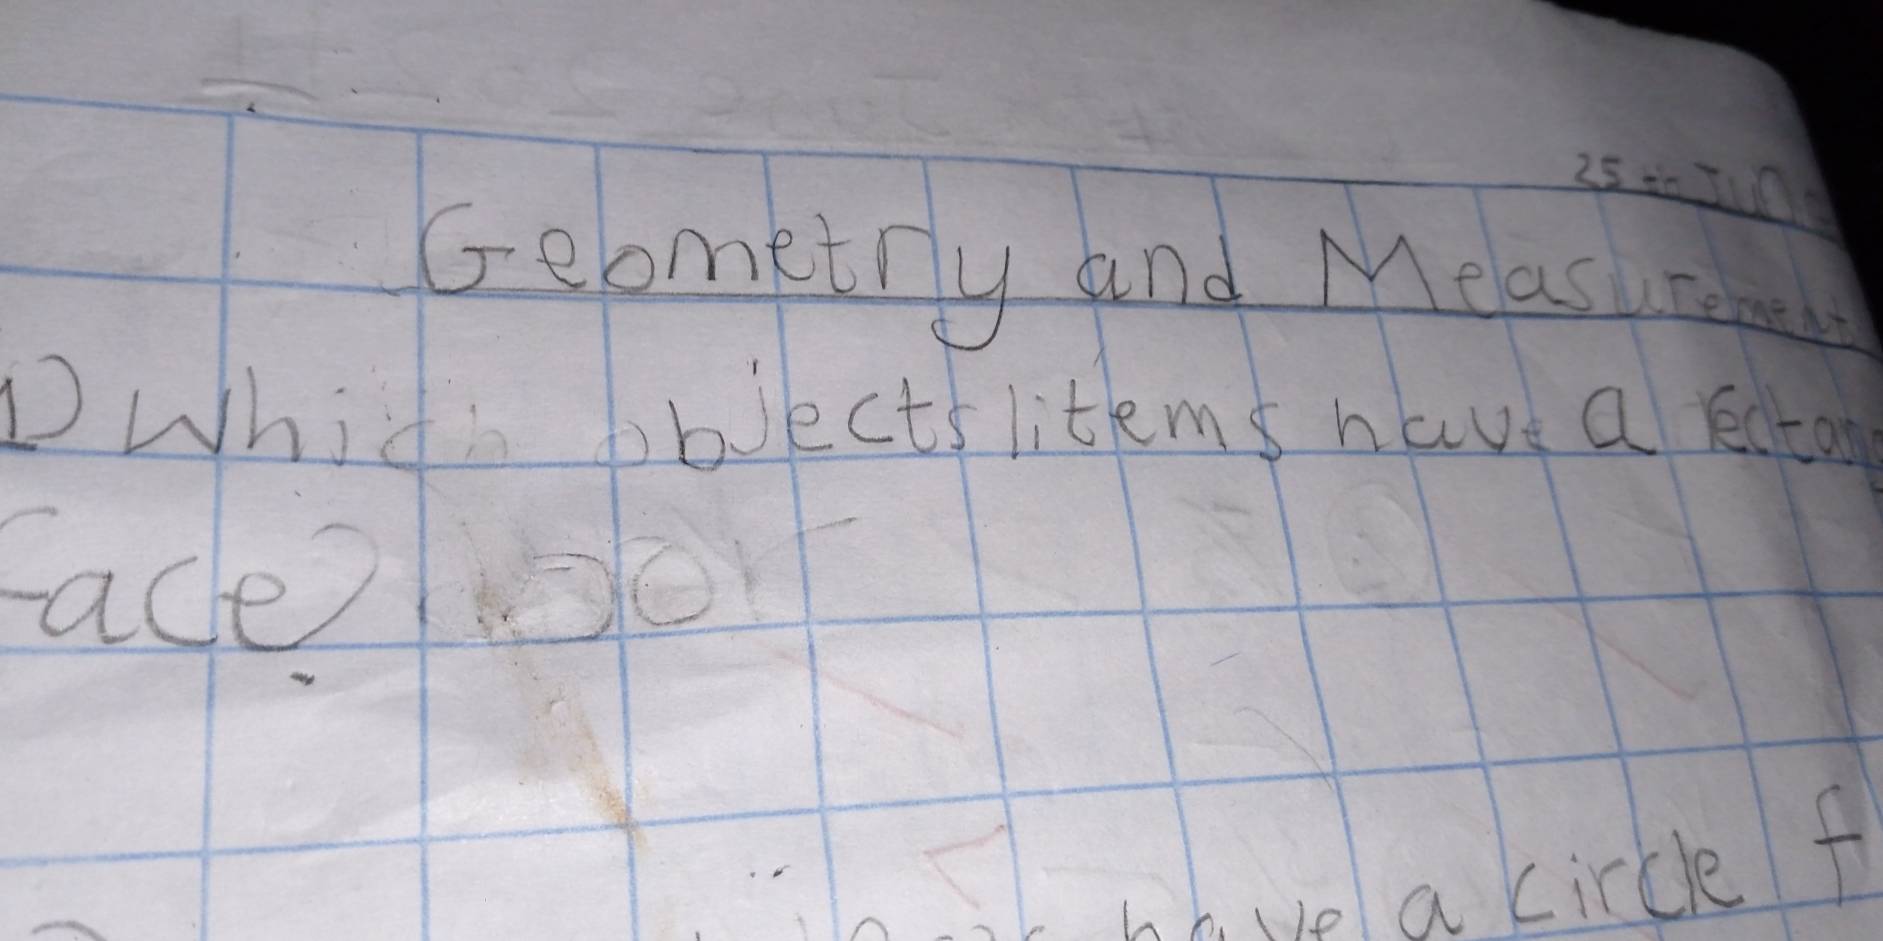 25th June
Geometry and Measurement
1) Which objects/items have a rectang
face?
Door
have a circle f